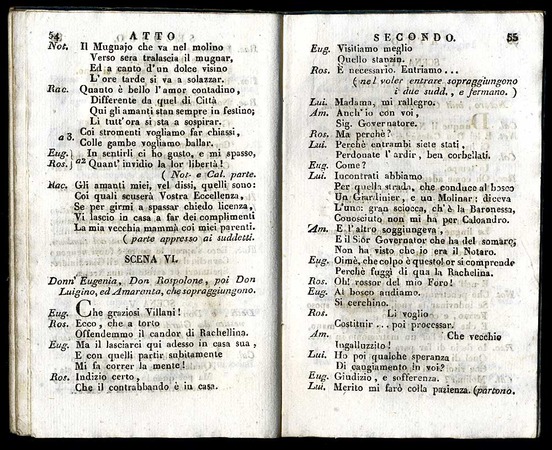 54 ATTO
Not. Il Mugnajo che va nel molino
Verso sera tralascia il mugnar,
Ed a canto d'un dolce visino
L'ore tarde si va a solazzar.
Rac. Quanto è bello l'amor contadino,
Differente da quel di Città
Qui gli amanti stan sempre in festino;
Lì tutt'ora si sta a sospirar.
a 3. Coi stromenti vogliamo far chiassi,
Colle gambe vogliamo ballar.
Eug. In sentirli ci ho gusto, e mi spasso,
Ros. a2 Quant'invidio la lor libertà!
( Not- e Cal. parte.
Rac. Gli amanti miei, vel dissi, quelli sono:
Coi quali scuserà Vostra Eccellenza,
Se per girmi a spassar chiedo licenza,
Vi lascio in casa a far dei complimenti
La mia vecchia mammà coi miei parenti.
( parte appresso ai suddetti.
SCENA VI.
Donn' Eugenia, Don Rospolone, poi Don
Luigino, ed Amaranta, che sopraggiungono.
Eug. Che graziosi Villani!
Ros. Ecco, che a torto
Offendemmo il candor di Rachellina.
Eug. Ma il lasciarci qui adesso in casa sua,
E con quelli partir subitamente
Mi fa correr la mente!
Ros. Indizio certo,
Che il contrabbando è in casa.
SECONDO. 55
Eug. Visitiamo meglio
Quello stanzin.
Ros. È necessario. Entriamo...
( nel voler entrare sopraggiungono
i due sudd., e fermano. )
Lui. Madama, mi rallegro.
Am. Anch'io con voi,
Sig. Governatore.
Ros. Ma perchè?
Lui. Perchè entrambi siete stati,
Perdonate l'ardir, ben corbellati.
Eug. Come?
Lui. Incontrati abbiamo
Per quella strada, che conduce al bosco
Un Giardinier, e un Molinar: diceva
L'uno: gran sciocca, ch'è la Baronessa,
Conosciuto non mi ha per Caloandro.
Am. E l'altro soggiungeva,
E il Siòr Governator che ha del somaro,
Non ha visto che io era il Notaro.
Eug. Oimè, che colpo è questo! or si comprende
Perchè fuggì di qua la Rachelina.
Ros. Oh! rossor del mio Foro!
Eug. Al bosco andiamo.
Si cerchino.
Ros. Li voglio
Costituir ... poi processar.
Am. Che vecchio
Ingalluzzito!
Lui. Ho poi qualche speranza
Di cangiamento in voi?
Eug. Giudizio, e sofferenza.
Lui. Merito mi farò colla pazienza. (partono.